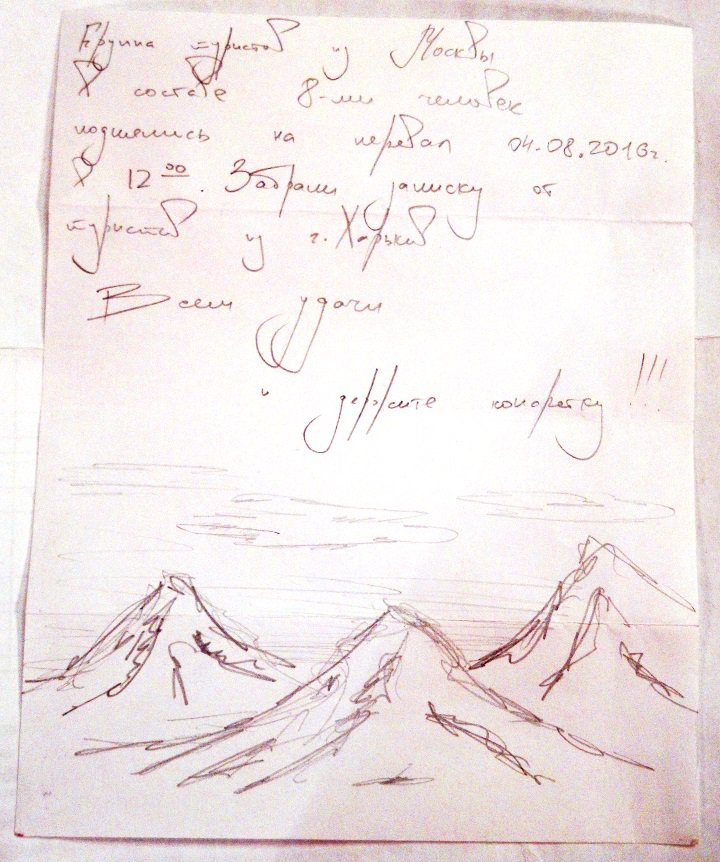 Группа туристов из Москвы
В составе 8-ми человек
поднялись на перевал 04.08.2016г.
В 12⁰⁰. Забрали записку от
туристов из г. Харьков
Всем удачи
и держите конфетку !!!